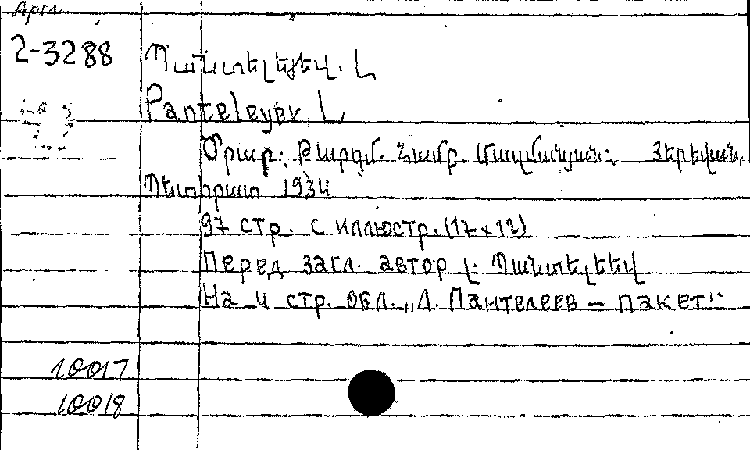 Арм.
2-3288
Պանտելեեվ. Լ
Panteleyev L,
Ծրար: Թարգմ. Համբ. Մազմանյան: Յերեվան,
Պետհրատ 1934
97 стр. с иллюстр. (17×12)
Перед загл. автор Լ. Պանտելեեվ
На 4 стр. обл., Л. Пантелеев – Пакет"
10017
10018